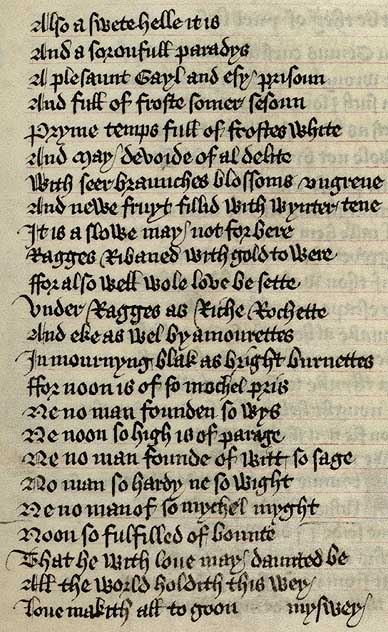 Also a swete helle it is
And a soroufull paradys
A plesaunt Gayl and esy prisoun
And full of froste somer sesoun
Pryme temps full of frostes white
And may devoide of al delite
With seer braunches blossoms vngrene
And newe fruyt fillid with wynter tene
It is a slowe may not forbere
Ragges Ribaned with gold to were
ffor also well wole love be sette
Vnder Ragges as Riche Rochette
And eke as wel by amourettes
In mournyng blak as bright burnettes
ffor noon is of so mochel pris
Ne no man founden so wys
Ne noon so high is of parage
Ne no man founde of witt so sage
No man so hardy ne so wight
Ne no man of so mychel myght
Noon so fulfilled of bounte
That he with loue may daunted be
All the world holdith this wey
Loue makith all to goon myswey